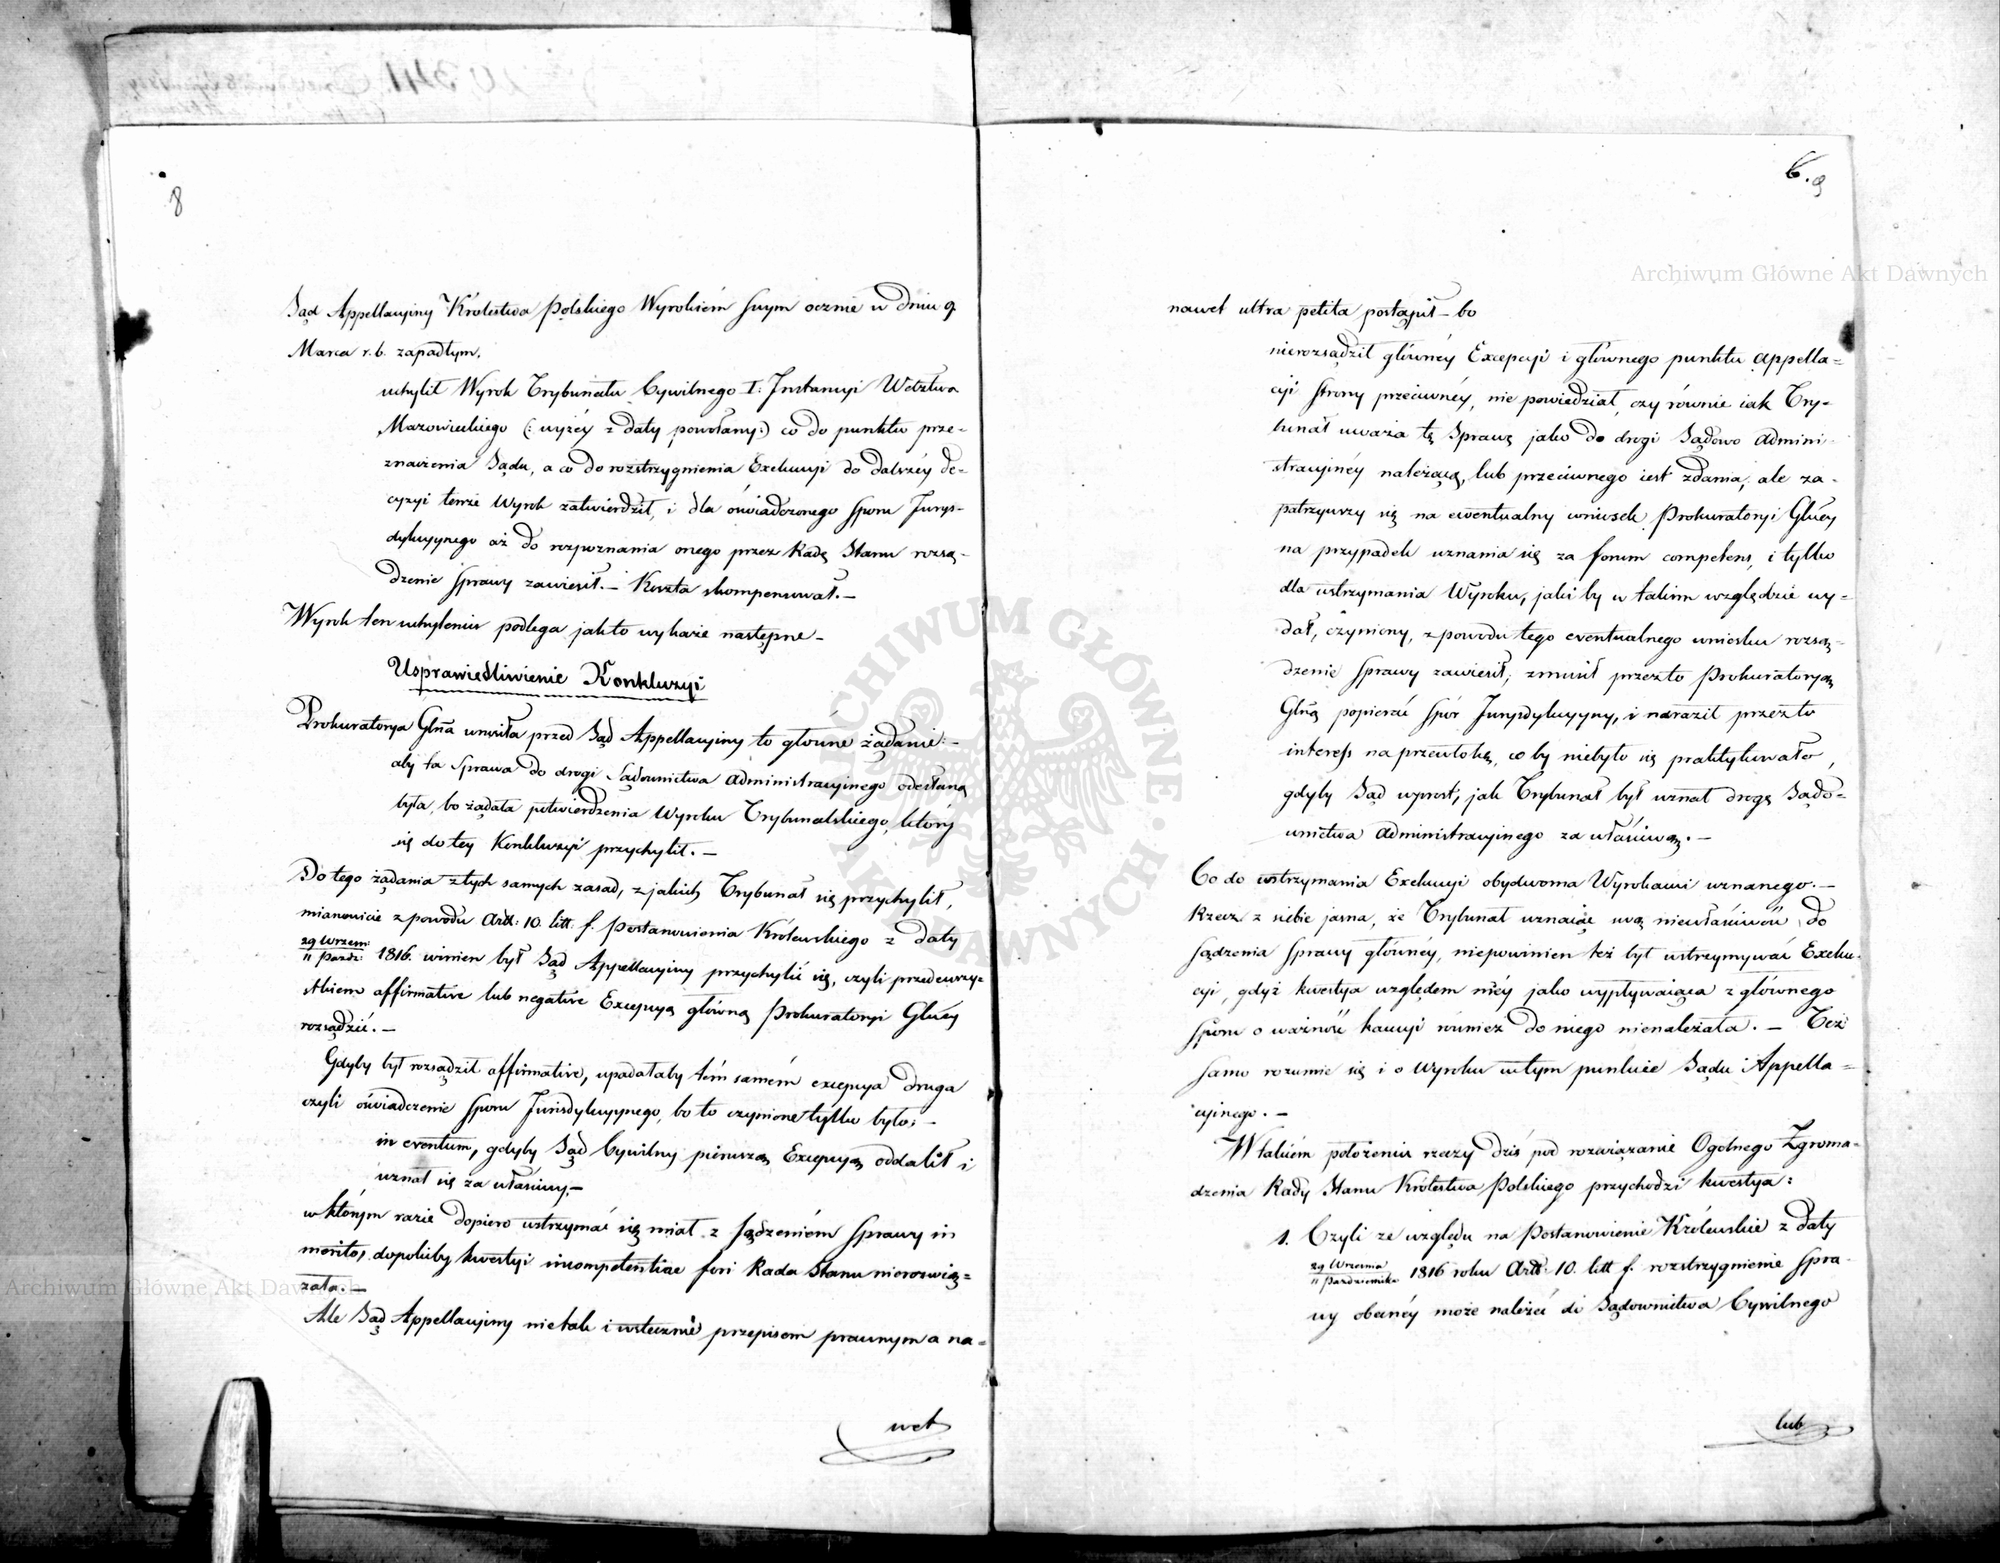 8
Sąd Appellacyiny Królestwa Polskiego Wyrokiem swym ocznie w dniu 9
Marca r. b. zapadłym.
uchylił Wyrok Trybunału Cywilnego I: Instancyi Wdztwa
Mazowieckiego (: wyżéy z daty powołany:) co do punktu prze-
znaczenia Sądu, a co do rozstrzygnienia Exekucyi do dalszéy de-
cyzyi tenże Wyrok zatwierdził, i dla oświadczonego sporu Jurys-
dykcyynego aż do rozpoznania onego przez Radę Stanu rozsą-
dzenie sprawy zawiesił. – Koszta skompensował. –
Wyrok ten uchyleniu podlega jak to wykaże następne –
Usprawiedliwienie Konkluzyi
Prokuratorya Głna wniosła przed Sąd Appellacyiny to główne żądanie: –
aby ta Sprawa do drogi Sądownictwa Administracyinego odesłaną
była, bo żądała potwierdzenia Wyroku Trybunalskiego, który
się do téy Konkluzyi przychylił. –
Do tego żądania z tych samych zasad, z jakich Trybunał się przychylił,
mianowicie z powodu Artt: 10. litt. f. Postanowienia Królewskiego z daty
29 Wrześn: / 11 Paźdz: 1816. winien był Sąd Appellacyiny przychylić się, czyli przedewszy-
stkiem affirmative lub negative Excepcyą główną Prokuratoryi Głnéy
rozsądzić. –
Gdyby był rozsądził affirmative, upadałaby tém samém excepcya druga
czyli oświadczenie sporu Jurisdykcyynego, bo to czynione tylko było; –
in eventum, gdyby Sąd Cywilny pierwszą Excepcyą oddalił i
uznał się za właściwy, –
w którym razie dopiero wstrzymać się miał z sądzeniém Sprawy in
merito, dopokiby kwestyi incompetentiae fori Rada Stanu nierozwią-
zała. –
Ale Sąd Appellacyiny nie tak i wstecznie przepisom prawnym a na-
wet
6. 9
nawet ultra petita postąpił – bo
nierozsądził główney Excepcyi i głównego punktu appella-
cyi strony przeciwnéy, nie powiedział, czy równie iak Try-
bunał uważa tę Sprawę jako do drogi Sądowo Admini-
stracyinéy należącą, lub przeciwnego iest zdania; ale za-
patrzywszy się na ewentualny wniosek Prokuratoryi Głnéy
na przypadek uznania się za forum competens, i tylko
dla wstrzymania Wyroku, jaki by w takim względzie wy-
dał, czyniony, z powodu tego eventualnego wniosku rozsą-
dzenie Sprawy zawiesił; zmusił przezto Prokuratoryą
Głną popierać spór Jurysdykcyyny, i naraził przezto
interess na przewłokę, co by niebyło się praktykowało,
gdyby Sąd wprost, jak Trybunał był uznał drogę Sądo-
wnictwa Administracyinego za właściwą. –
Co do wstrzymania Exekucyi obydwoma Wyrokami uznanego. –
Rzecz z siebie jasna, że Trybunał uznaiąc swą niewłaściwość do
sądzenia Sprawy główney, niepowinien też był wstrzymywać Exeku-
cyi, gdyż kwestya względem niéy jako wypływaiąca z głównego
sporu o ważność kaucyi również do niego nienależała. – Też
samo rozumie się i o Wyroku w tym punkcie Sądu Appella-
cyinego. –
W takiém położeniu rzeczy dziś pod rozwiązanie Ogolnego Zgroma-
dzenia Rady Stanu Królestwa Polskiego przychodzi kwestya:
1. Czyli ze względu na Postanowienie Królewskie z daty
29 Września / 11 Października 1816 roku Artt: 10. litt f. rozstrzygnienie Spra-
wy obecnéy może należeć do Sądownictwa Cywilnego
lub
Archiwum Główne Akt Dawnych
Archiwum Główne Akt Dawnych
ARCHIWUM GŁÓWNE AKT DAWNYCH